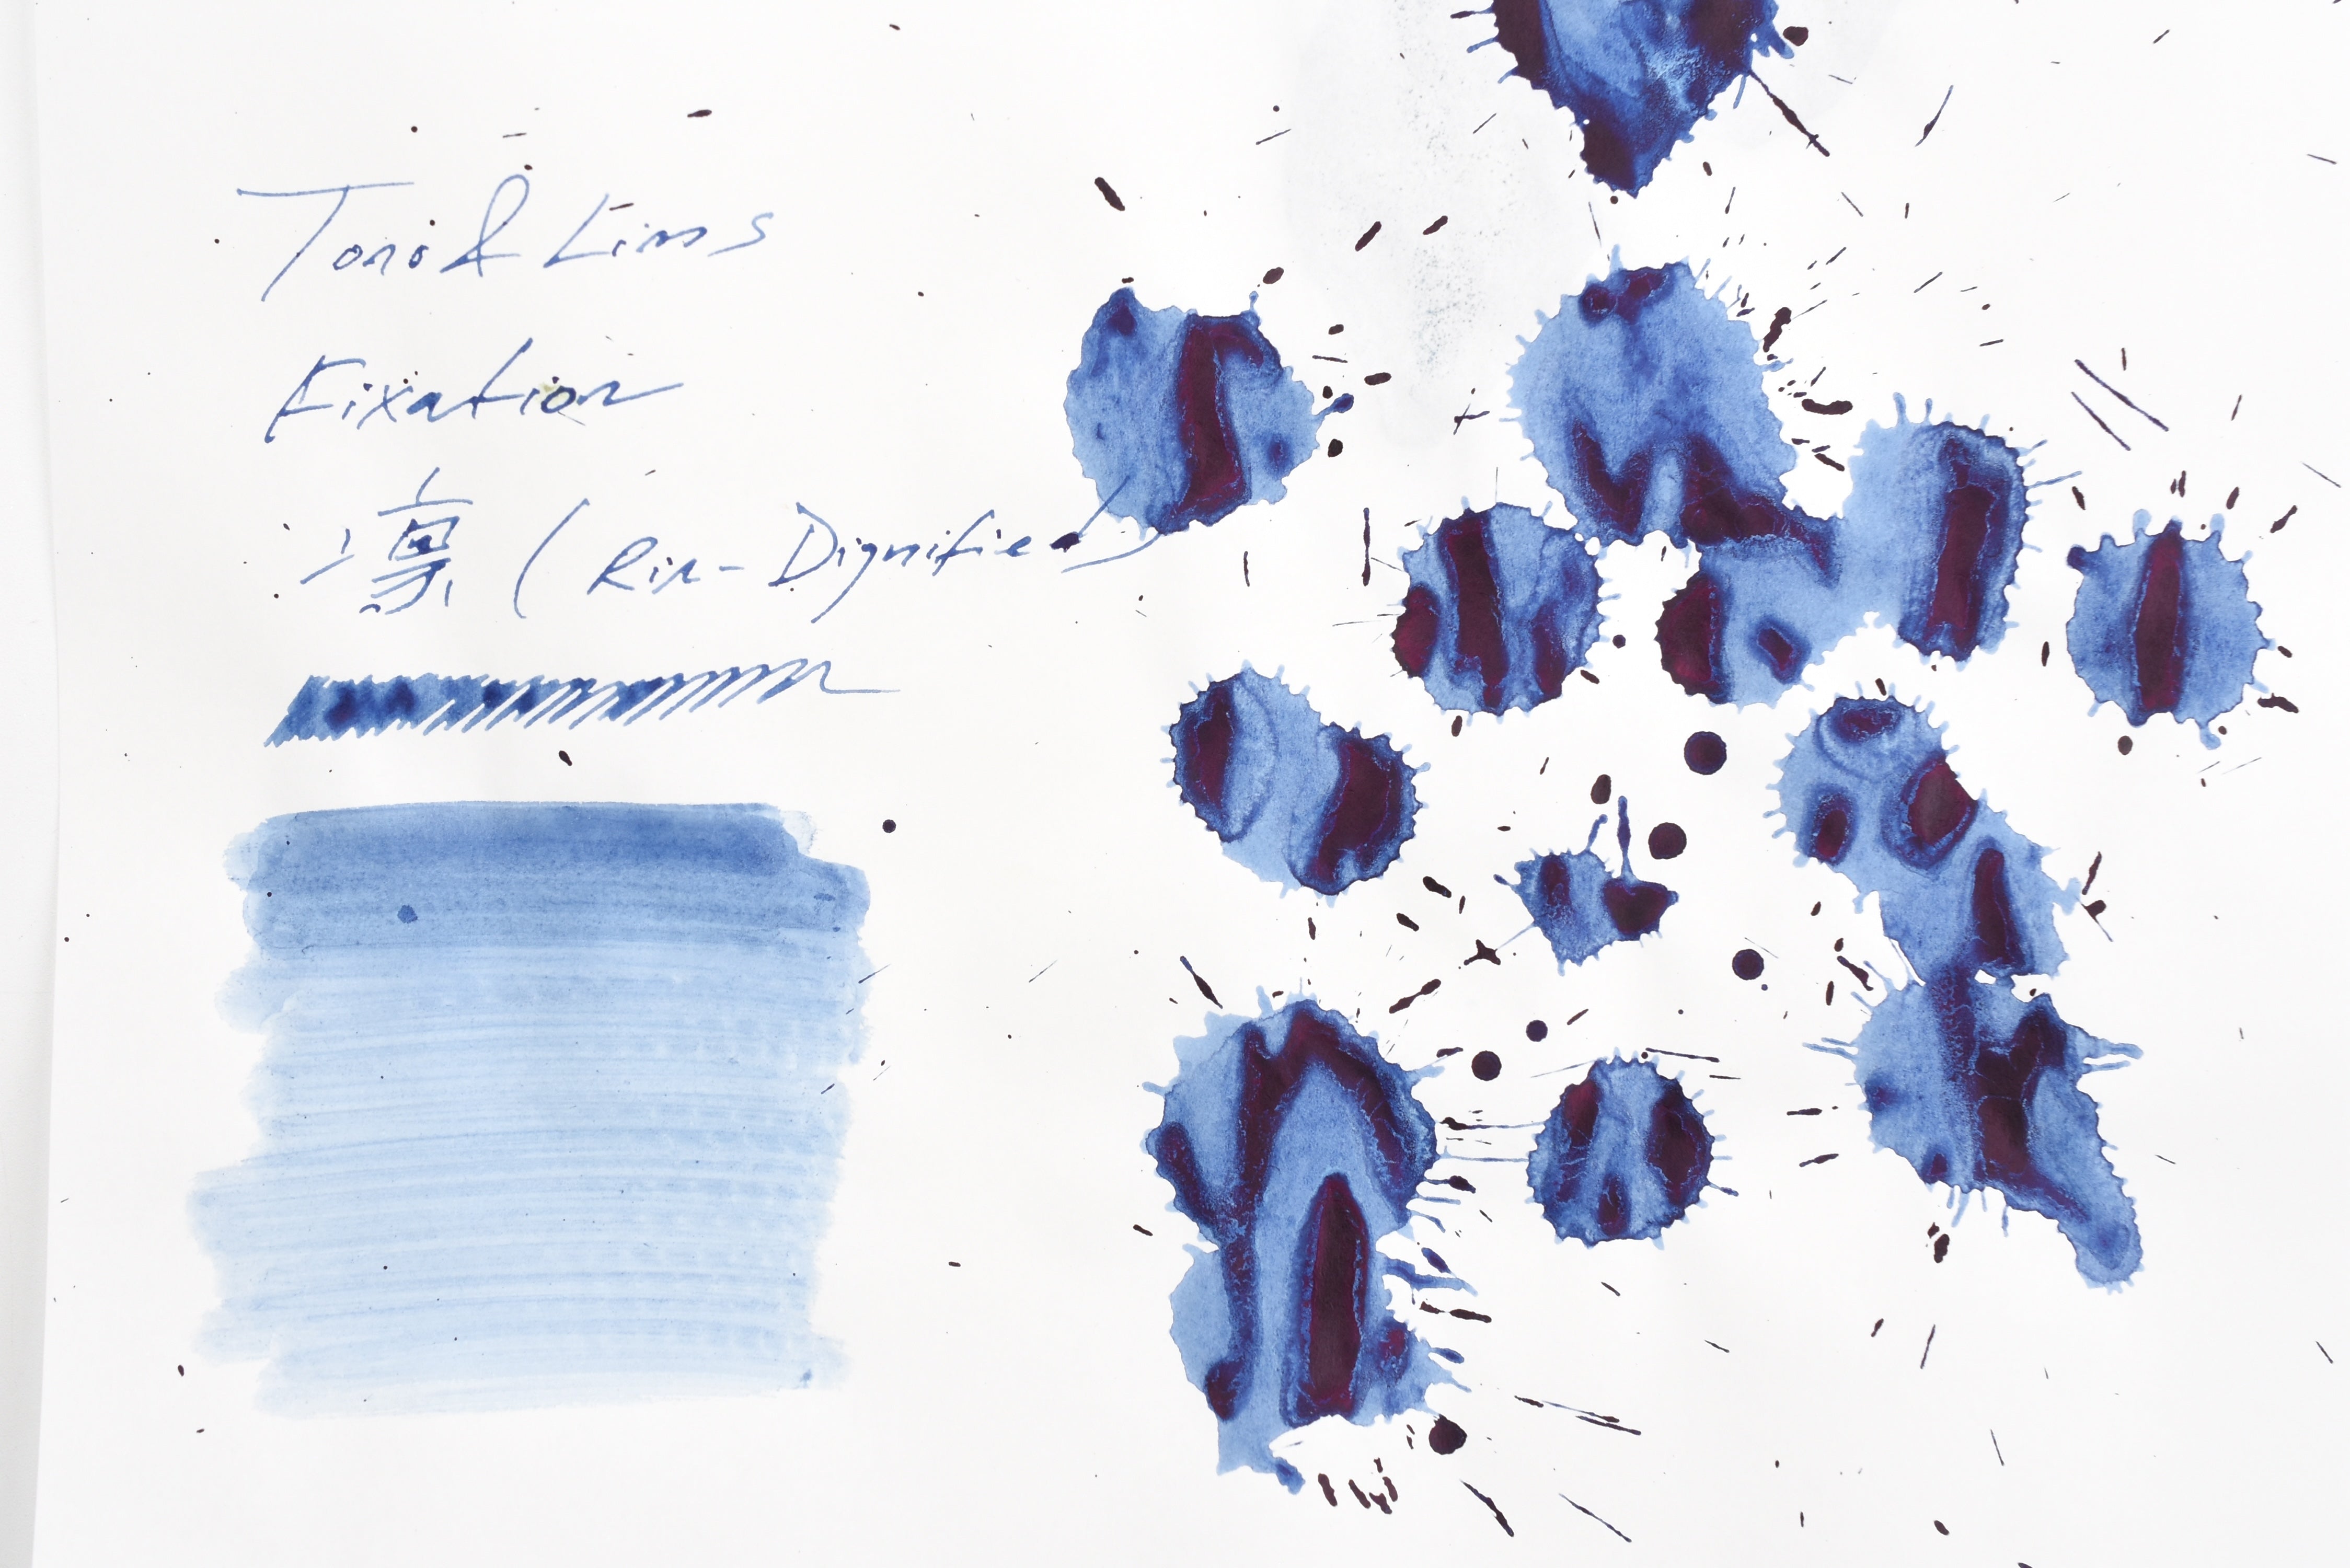 Tono & Lims
Fixation
凛 (Rin-Dignified)